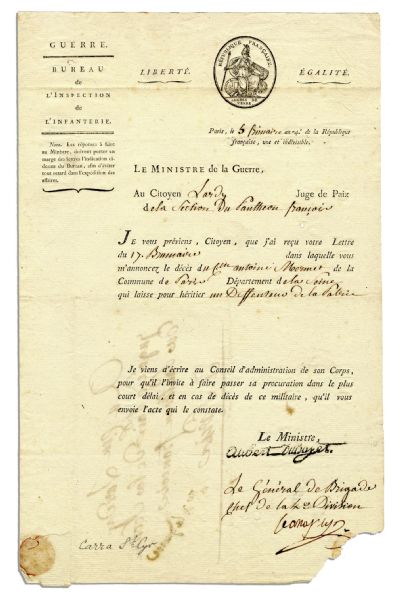 GUERRE.
BUREAU
de
L'INSPECTION
de
L'INFANTERIE.
NOTA. Les réponses à faire
au Ministre, doivent porter en
marge des lettres l'indication ci-
dessus du Bureau, afin d'éviter
tout retard dans l'expédition des
affaires.
LIBERTÉ.
RÉPUBLIQUE FRANÇAISE.
ÉGALITÉ.
Paris, le 5 frimaire an 4e. de la République
française, une et indivisible.
LE MINISTRE de la Guerre,
Au Citoyen Lardy Juge de Paix
de la Section Du Pantheon françois
JE vous préviens, Citoyen, que j'ai reçu votre Lettre
du 17. Brumaire dans laquelle vous
m'annoncez le décès du Cen antoine Mermet de la
Commune de Paris Département de la Seine
qui laisse pour héritier un Deffenseur de la Patrie
Je viens d'écrire au Conseil d'administration de son Corps,
pour qu'il l'invite à faire passer sa procuration dans le plus
court délai, et en cas de décès de ce militaire, qu'il vous
envoie l'acte qui le constate.
Le Ministre,
Aubert Dubayet
Le Général de Brigade
Chef de la Division
Carra St Cyr